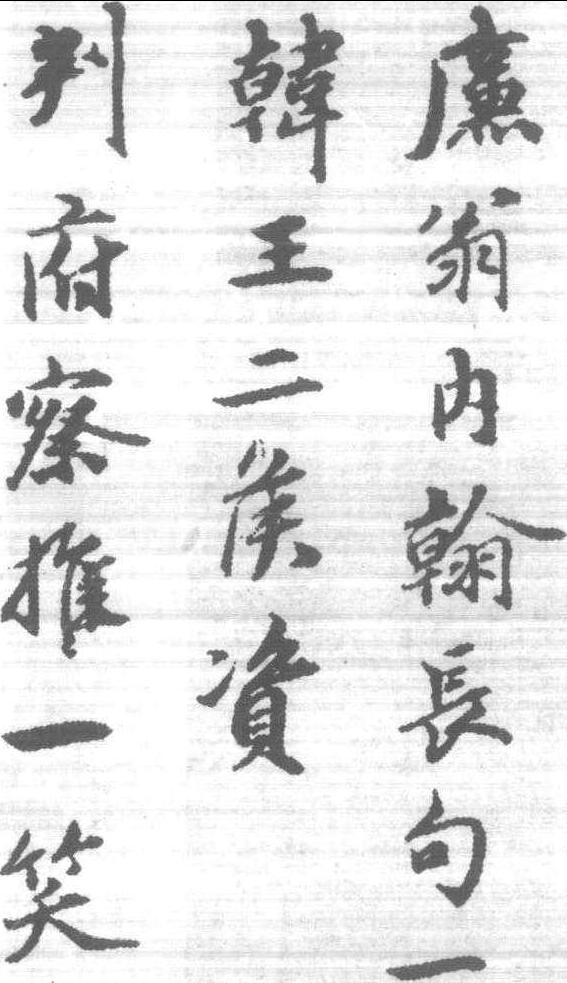 廉翁内翰長句一
韓王二侯資
判府察推一笑